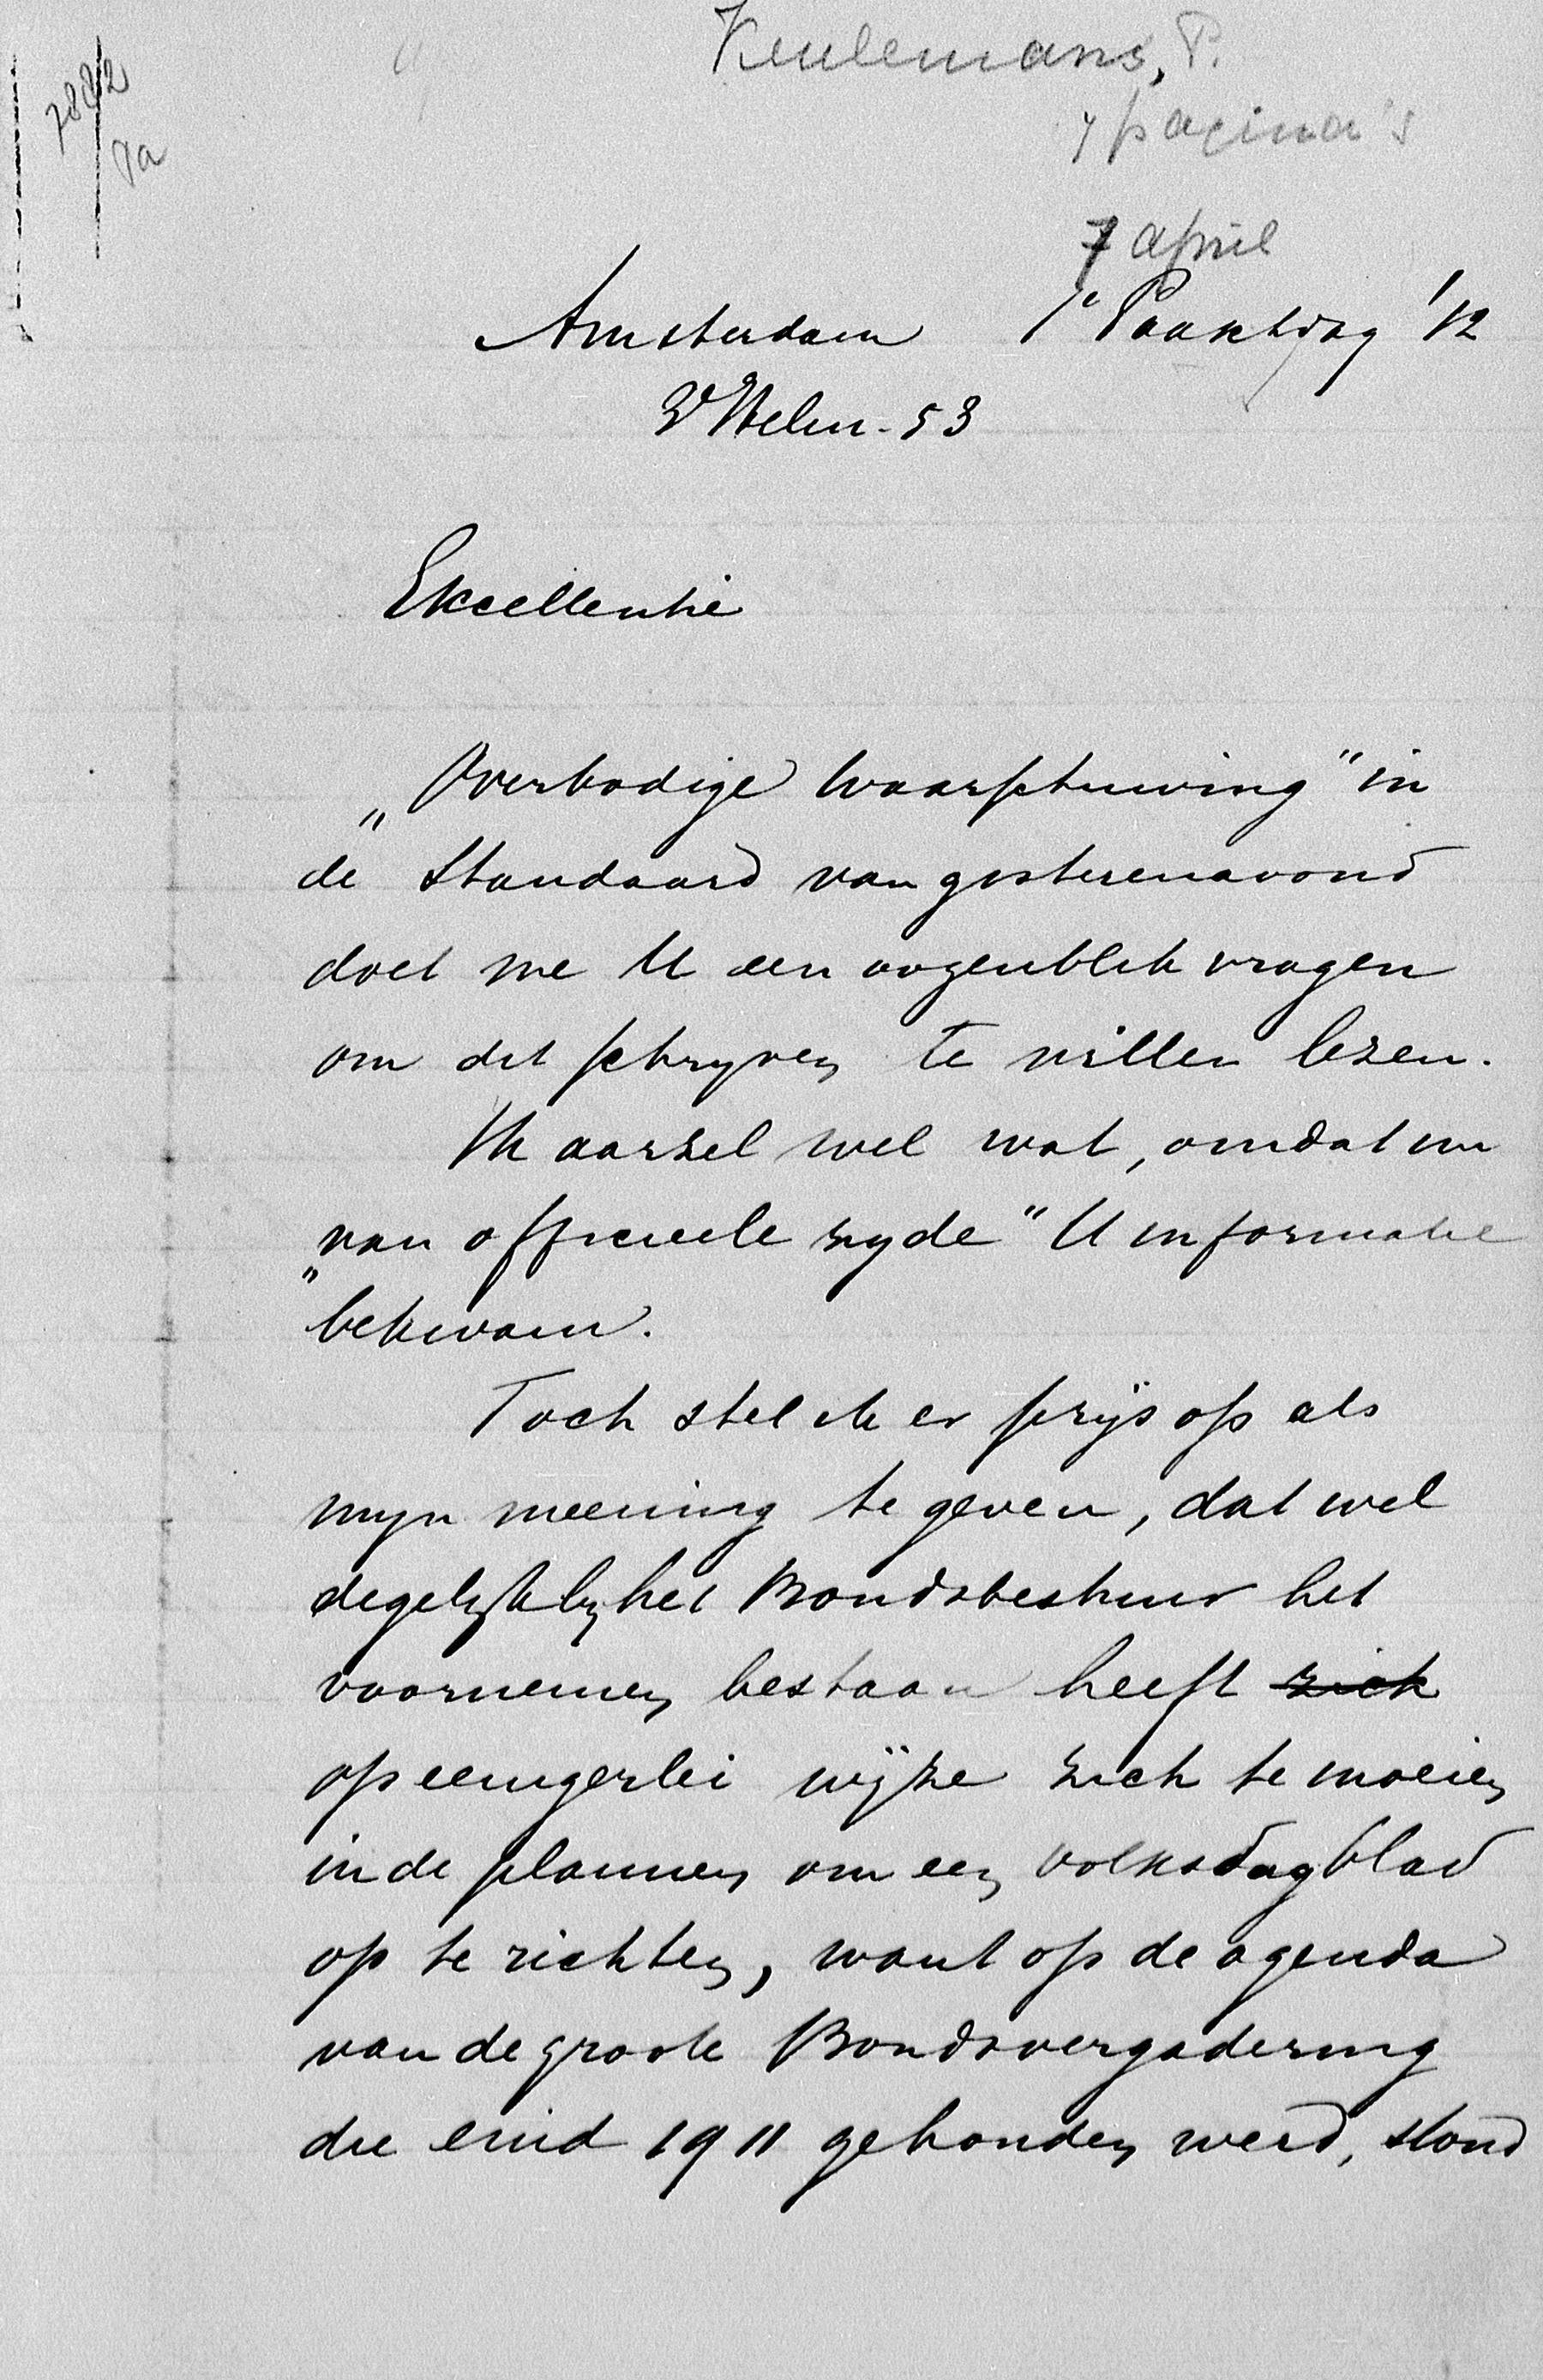 Keulemans, P.
pagina's
7882
7a
7 april
Amsterdam 1e Paaschdag '12
2e Helm. 53
Excellentie
„Overbodige Waarschuwing" in
de Standaard van gisterenavond
doet me U een oogenblik vragen
om dit schrijven te willen lezen.
Ik aarzel wel wat, omdat nu
„van officieele zyde" U informatie
bekwam.
Toch stel ik er prijs op als
myn meening te geven, dat wel
degelyk by het Bondsbestuur het
voornemen bestaan heeft zich
op eenigerlei wijze zich te moeien
in de plannen om een volksdagblad
op te richten, want op de agenda
van de groote Bondsvergadering
die eind 1911 gehouden werd, stond